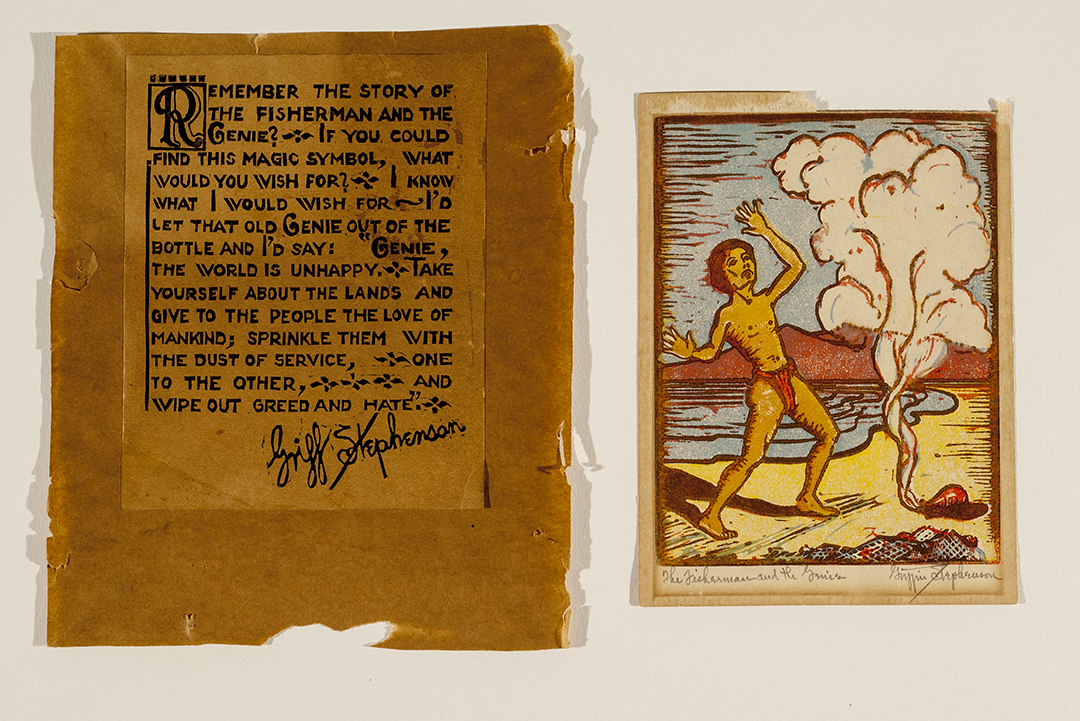 REMEMBER THE STORY OF
THE FISHERMAN AND THE
GENIE? IF YOU COULD
FIND THIS MAGIC SYMBOL, WHAT
WOULD YOU WISH FOR? I KNOW
WHAT I WOULD WISH FOR ~ I'D
LET THAT OLD GENIE OUT OF THE
BOTTLE AND I'D SAY: "GENIE,
THE WORLD IS UNHAPPY. TAKE
YOURSELF ABOUT THE LANDS AND
GIVE TO THE PEOPLE THE LOVE OF
MANKIND; SPRINKLE THEM WITH
THE DUST OF SERVICE, ONE
TO THE OTHER, AND
WIPE OUT GREED AND HATE".
Griff Stephenson
The Fisherman and the Genie Griffin Stephenson